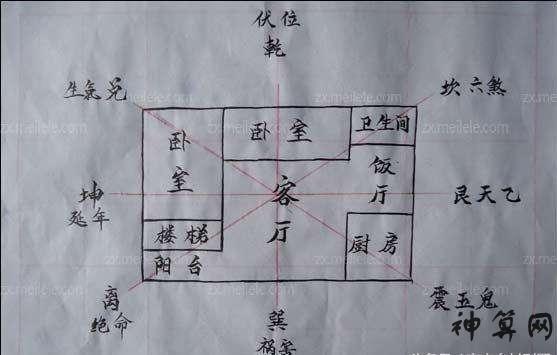 伏位
乾
生氣兑
坎六煞
zx.meilele.com
zx.meilele.com
zx.meilele.com
卧室
卧室
卫生间
饭厅
客厅
坤
延年
艮天乙
楼梯
阳台
厨房
zx.meilele.com
zx.meilele.com
zx.meilele.com
离
绝命
巽
祸害
震五鬼
神算网